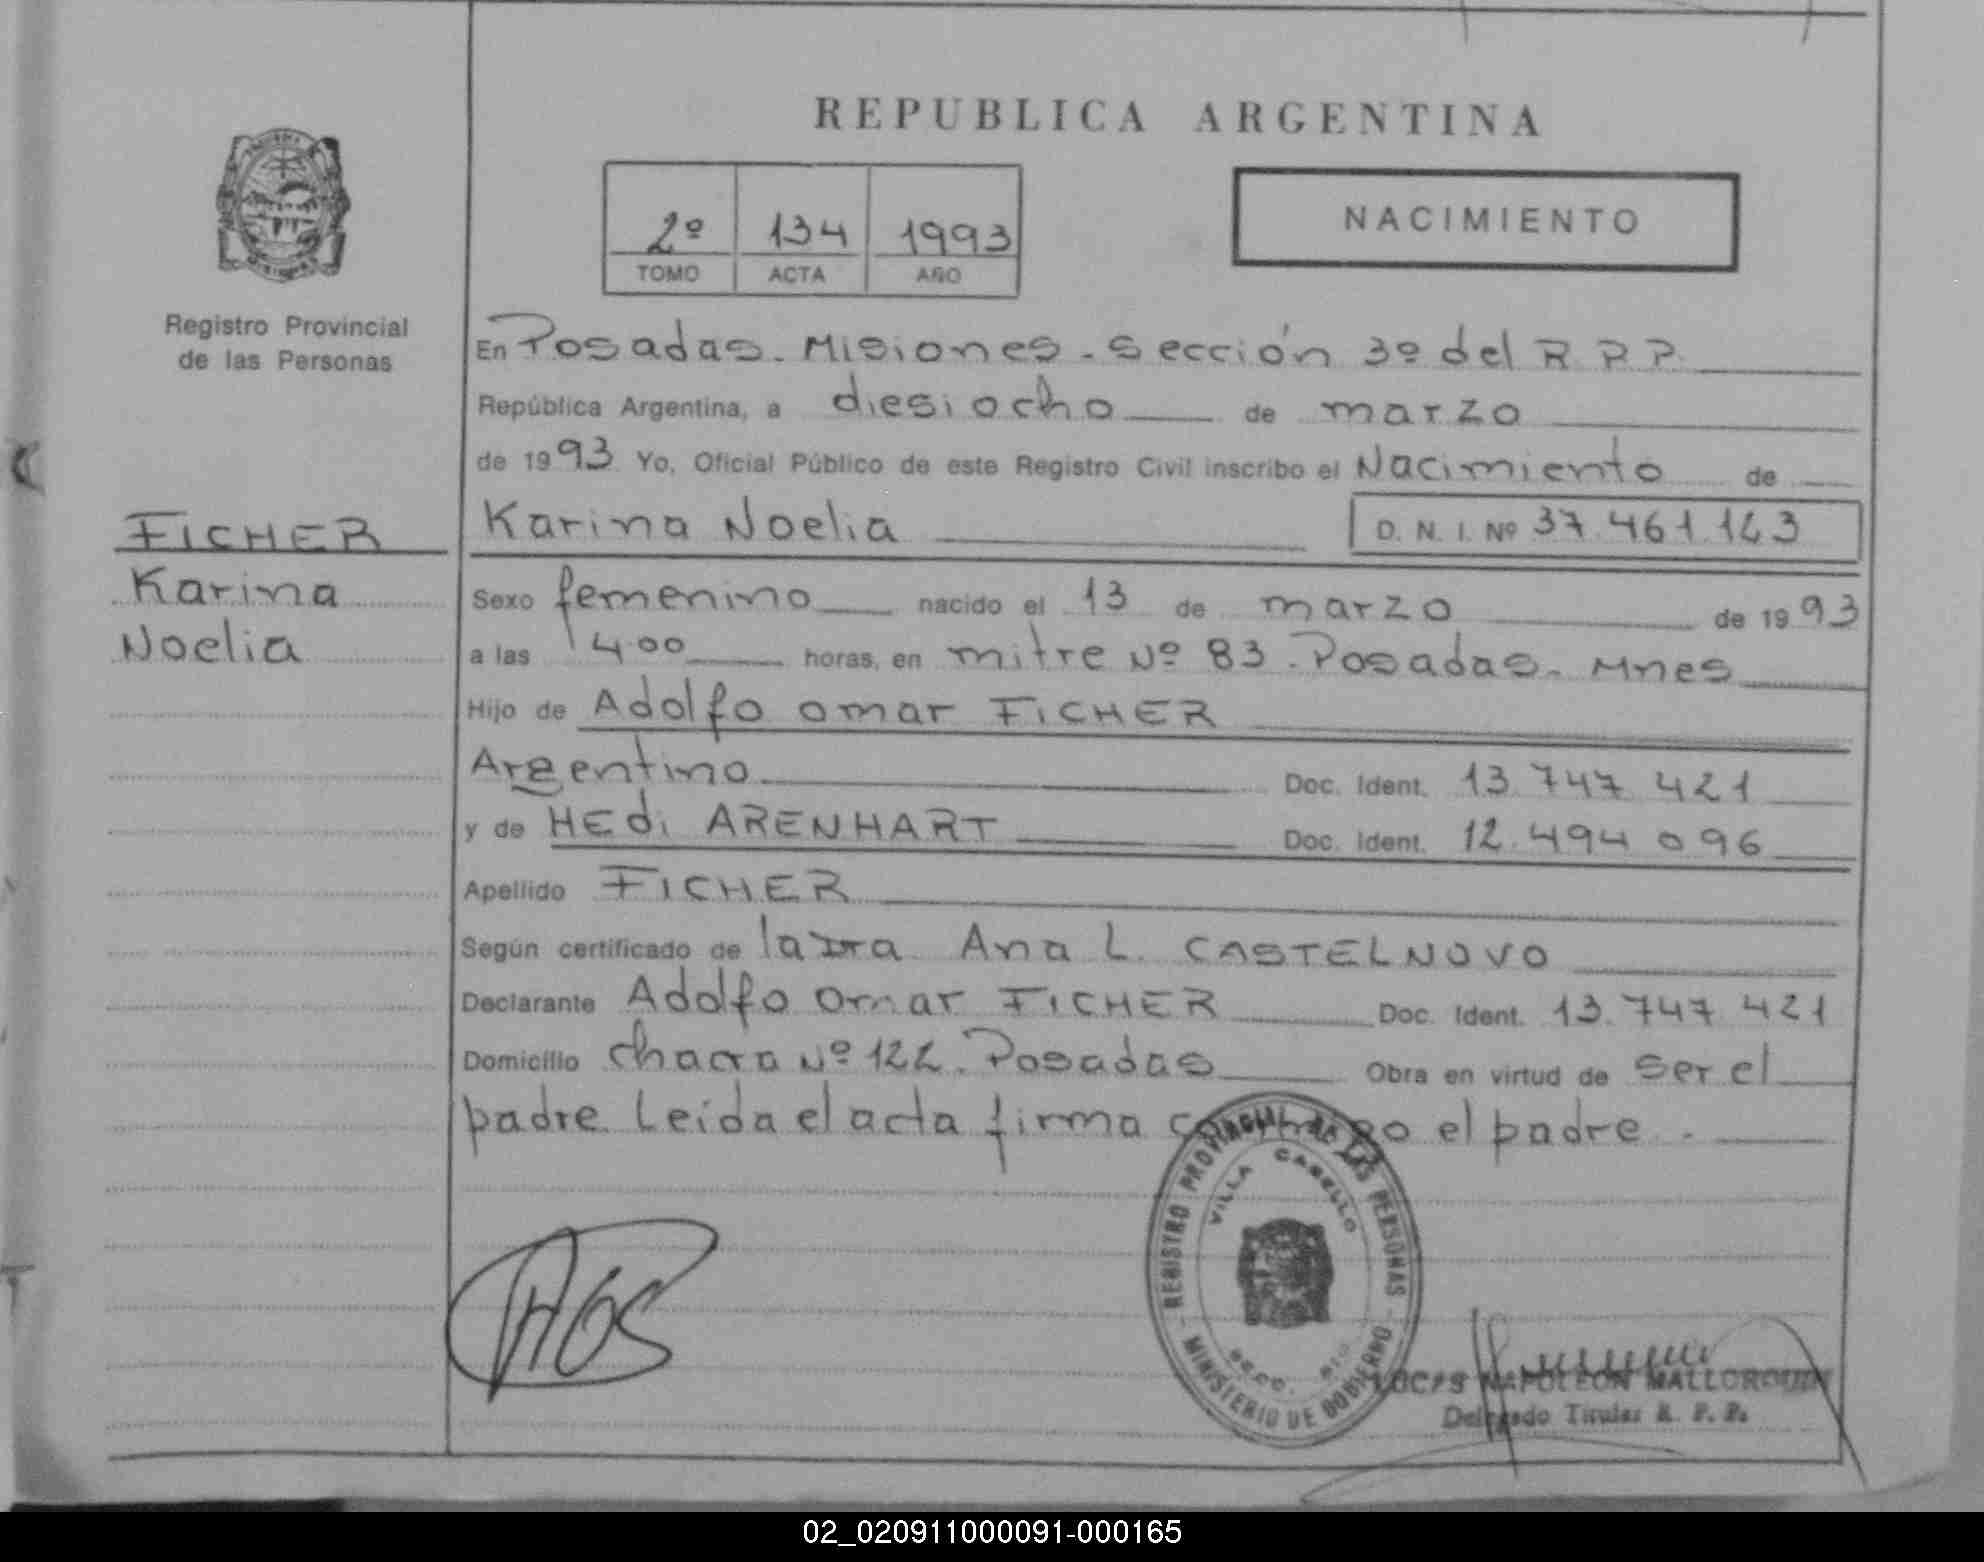 REPUBLICA ARGENTINA
2º 134 1993
TOMO ACTA AÑO
NACIMIENTO
Registro Provincial
de las Personas
FICHER
Karina
Noelia
En Posadas. Misiones. Sección 3º del R P P.
República Argentina, a diesiocho de marzo
de 1993 Yo, Oficial Público de este Registro Civil inscribo el Nacimiento de
Karina Noelia D. N. I. Nº 37.461.143
Sexo femenino nacido el 13 de marzo de 1993
a las 14.00 horas, en mitre Nº 83. Posadas. Mnes
Hijo de Adolfo Omar FICHER
Argentino Doc. Ident. 13.747.421
y de HEdi ARENHART Doc. Ident. 12.494.096
Apellido FICHER
Según certificado de la Dra Ana L. CASTELNOVO
Declarante Adolfo Omar FICHER Doc. Ident. 13.747.421
Domicilio Chacra Nº 122. Posadas Obra en virtud de ser el
padre. Leida el acta firma conmigo el padre.
REGISTRO PROVINCIAL DE LAS PERSONAS
VILLA CABELLO
MINISTERIO DE GOBIERNO
NAPOLEON MALLORQUIN
Delegado Titular R. P. P.
02_020911000091-000165